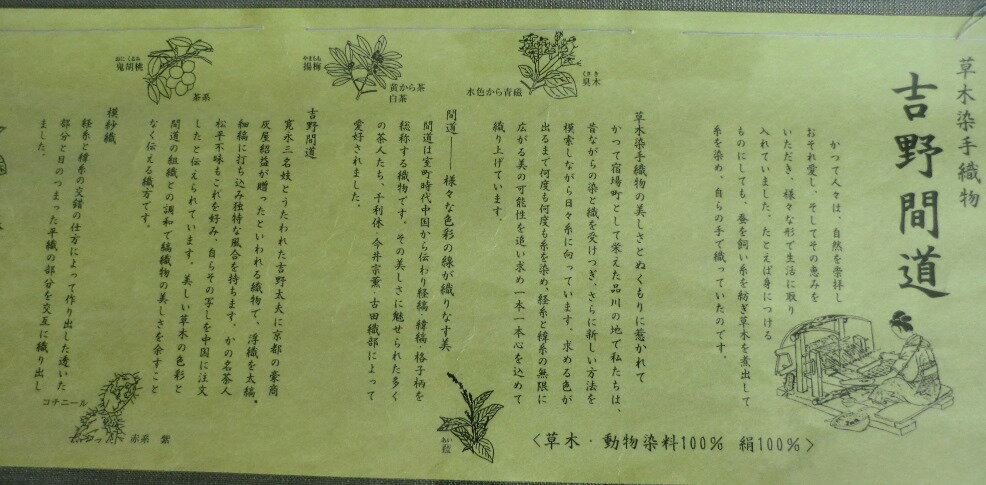 草木染手織物
吉野間道
かつて人々は、自然を崇拝し
おそれ愛し、そしてその恵みを
いただき、様々な形で生活に取り
入れていました。たとえば身につける
ものにしても、蚕を飼い糸を紡ぎ草木を煮出して
糸を染め、自らの手で織っていたのです。
草木染手織物の美しさとぬくもりに惹かれて
かつて宿場町として栄えた品川の地で私たちは、
昔ながらの染と織を受けつぎ、さらに新しい方法を
模索しながら日々糸に向っています。求める色が
出るまで何度も何度も糸を染め、経糸と緯糸の無限に
広がる美の可能性を追い求め一本一本心を込めて
織り上げています。
間道―― 様々な色彩の線が織りなす美
間道は室町時代中国から伝わり経縞・緯縞・格子柄を
総称する織物です。その美しさに魅せられた多く
の茶人たち、千利休・今井宗薫・古田織部によって
愛好されました。
吉野間道
寛永三名妓とうたわれた吉野太夫に京都の豪商
灰屋紹益が贈ったといわれる織物で、浮織を太縞・
細縞に打ち込み独特な風合を持ちます。かの名茶人
松平不味もこれを好み、自らその写しを中国に注文
したと伝えられています。美しい草木の色彩と
間道の組織との調和で縞織物の美しさを余すこと
なく伝える織方です。
模紗織
経糸と緯糸の交錯の仕方によって作り出した透いた
部分と目のつまった平織の部分を交互に織り出し
ました。
くさき
臭木
水色から青磁
やまもも
揚梅
黄から茶
白茶
おにくるみ
鬼胡桃
茶系
あい
藍
コチニール
赤系 紫
<草木・動物染料100% 絹100%>